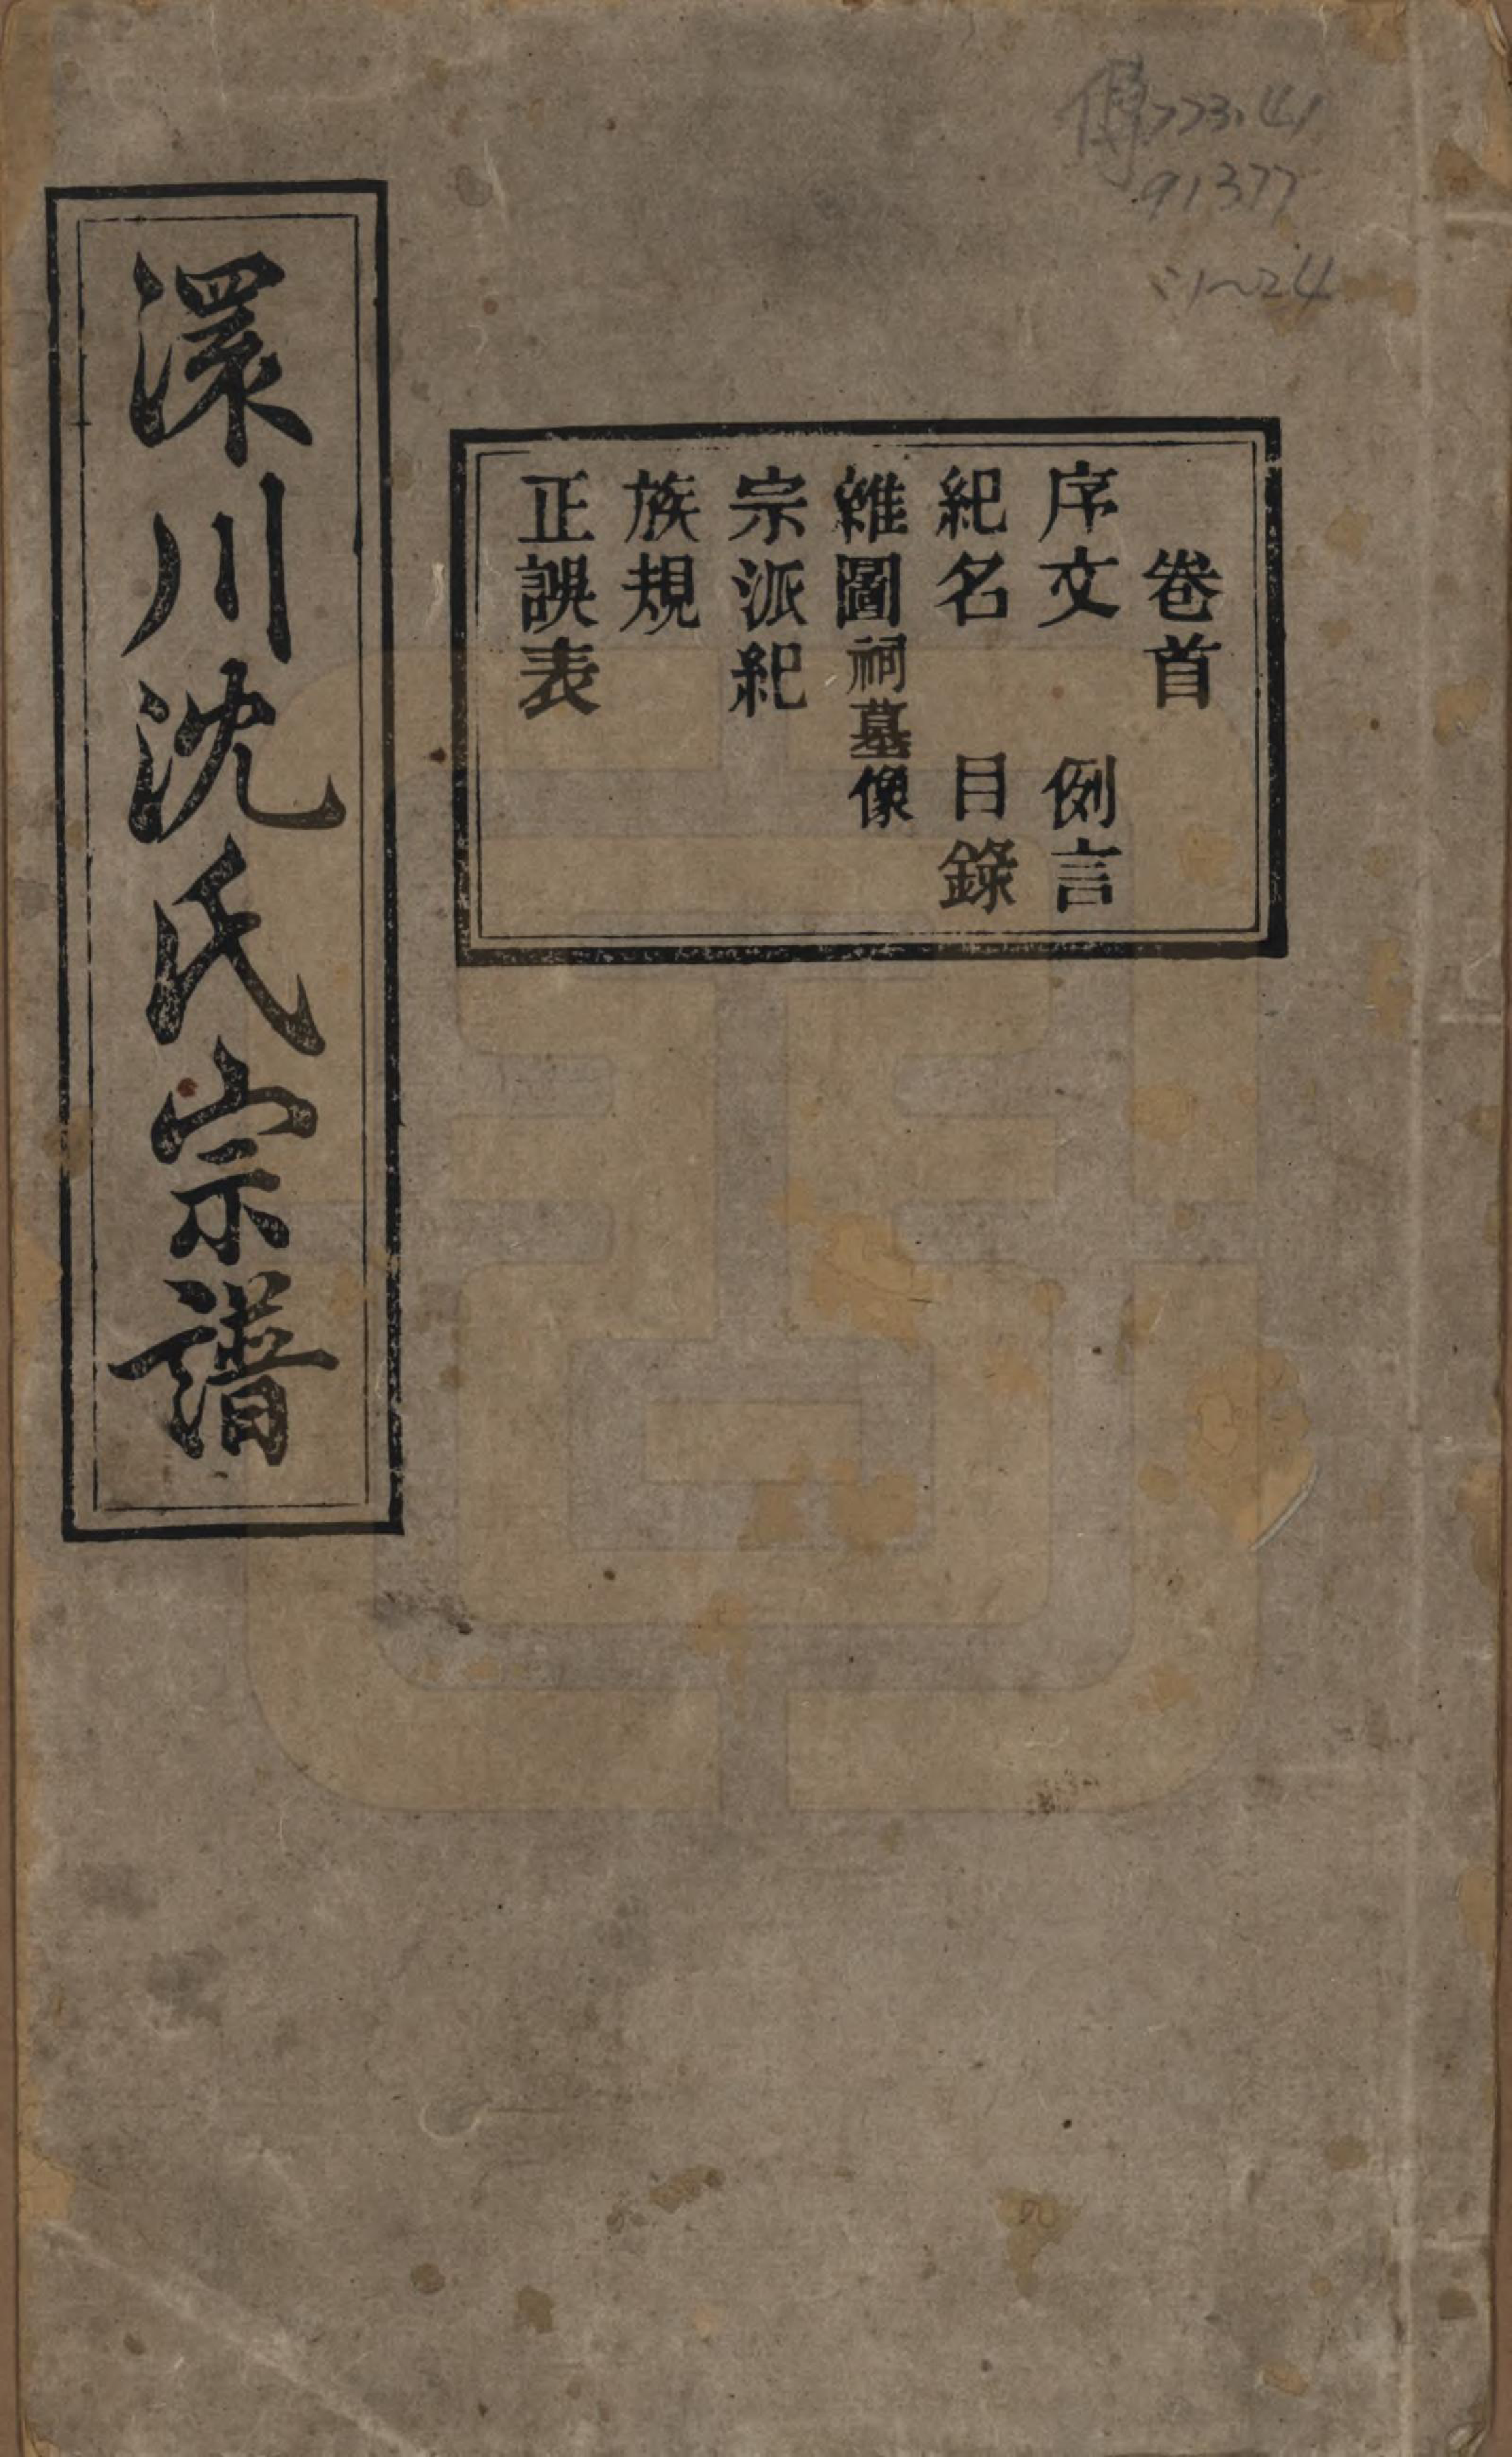 傳773.41
91377
:1~24
卷首
序文　例言
紀名　目錄
雜圖祠墓像
宗派紀
族規
正誤表
澴川沈氏宗譜